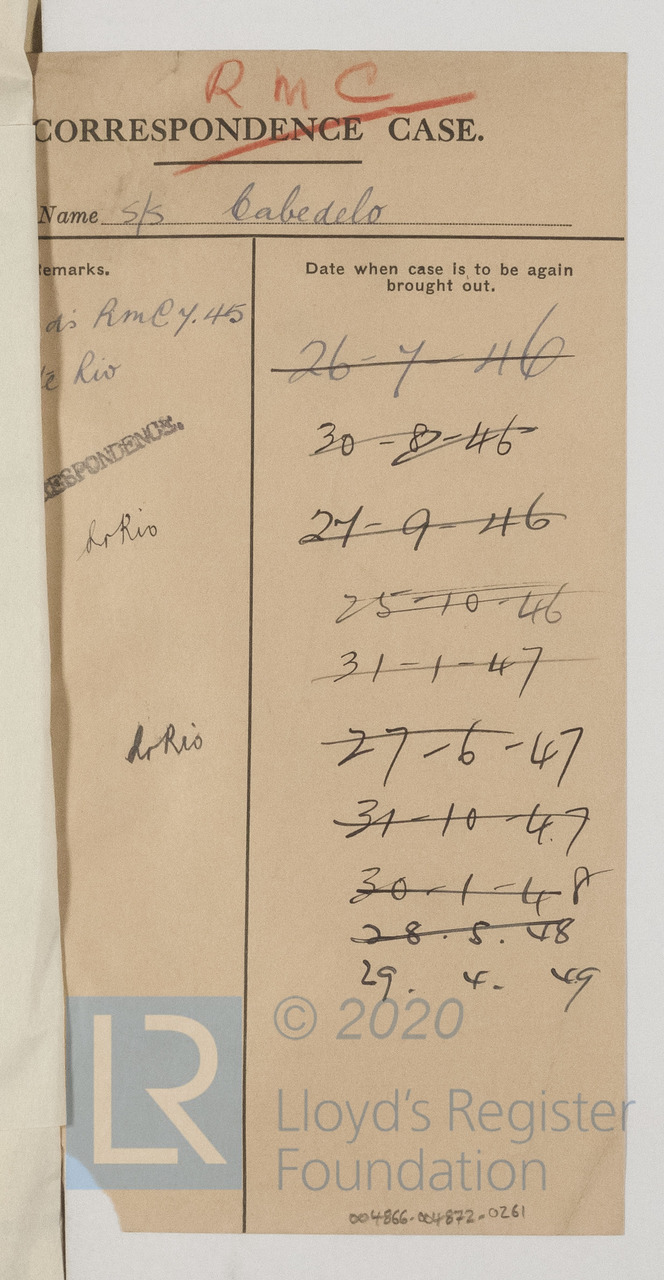 RMC
CORRESPONDENCE CASE.
Name s/s Cabedelo
emarks.
Date when case is to be again
brought out.
ds RMC 7.45
te Rio
RESPONDENCE.
dr Rio
dr Rio
26-7-46
30-8-46
27-9-46
25-10-46
31-1-47
27-6-47
31-10-47
30-1-48
28.5.48
29. 4. 49
LR
© 2020
Lloyd's Register
Foundation
004866-004872-0261